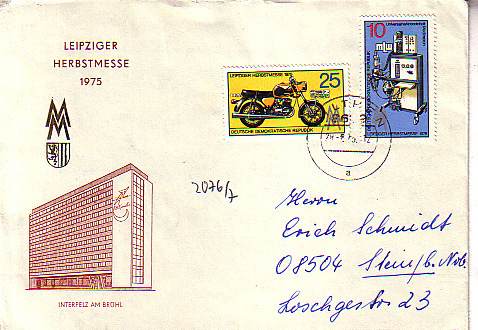 LEIPZIGER
HERBSTMESSE
1975
MM
INTERFELZ AM BRÜHL
LEIPZIGER HERBSTMESSE 1975
25
DEUTSCHE DEMOKRATISCHE REPUBLIK
10
LEIPZIGER HERBSTMESSE 1975
a
2076/7
Herrn
Erich Schmidt
08504 Stein/b. Nbb.
Loschgestr. 23